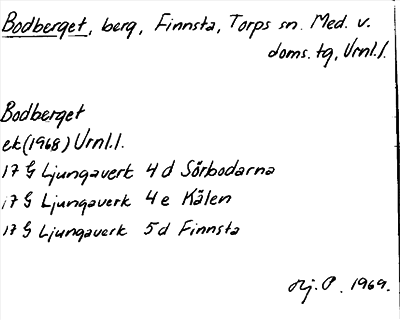 Bodberget, berg, Finnsta, Torps sn. Med. v.
doms. tg, Urnl.l.
Bodberget
ek (1968) Urnl.l.
17 G Ljungaverk 4 d Sörbodarna
17 G Ljungaverk 4 e Kälen
17 G Ljungaverk 5 d Finnsta
Hj. P. 1969.